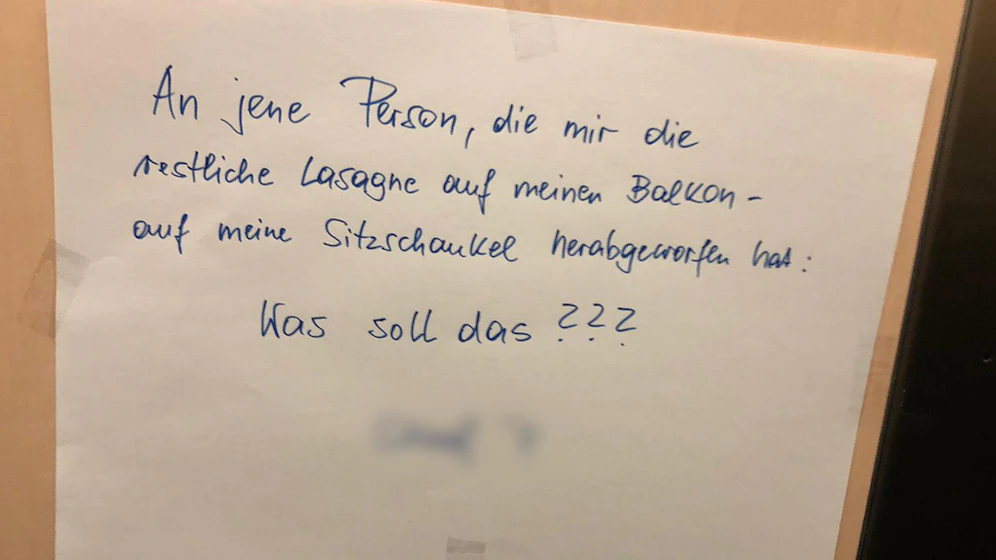 An jene Person, die mir die
restliche Lasagne auf meinen Balkon -
auf meine Sitzschaukel herabgeworfen hat:
Was soll das ???